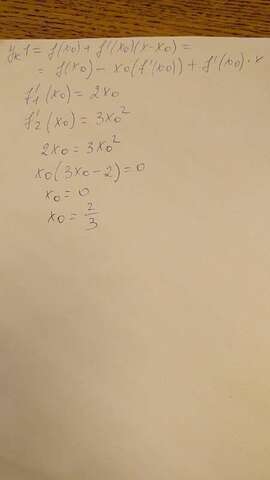 yₖ1 = f(x₀) + f'(x₀)(x-x₀) =
= f(x₀) - x₀(f'(x₀)) + f'(x₀)·x
f₁'(x₀) = 2x₀
f₂'(x₀) = 3x₀²
2x₀ = 3x₀²
x₀(3x₀-2) = 0
x₀ = 0
x₀ = 2/3